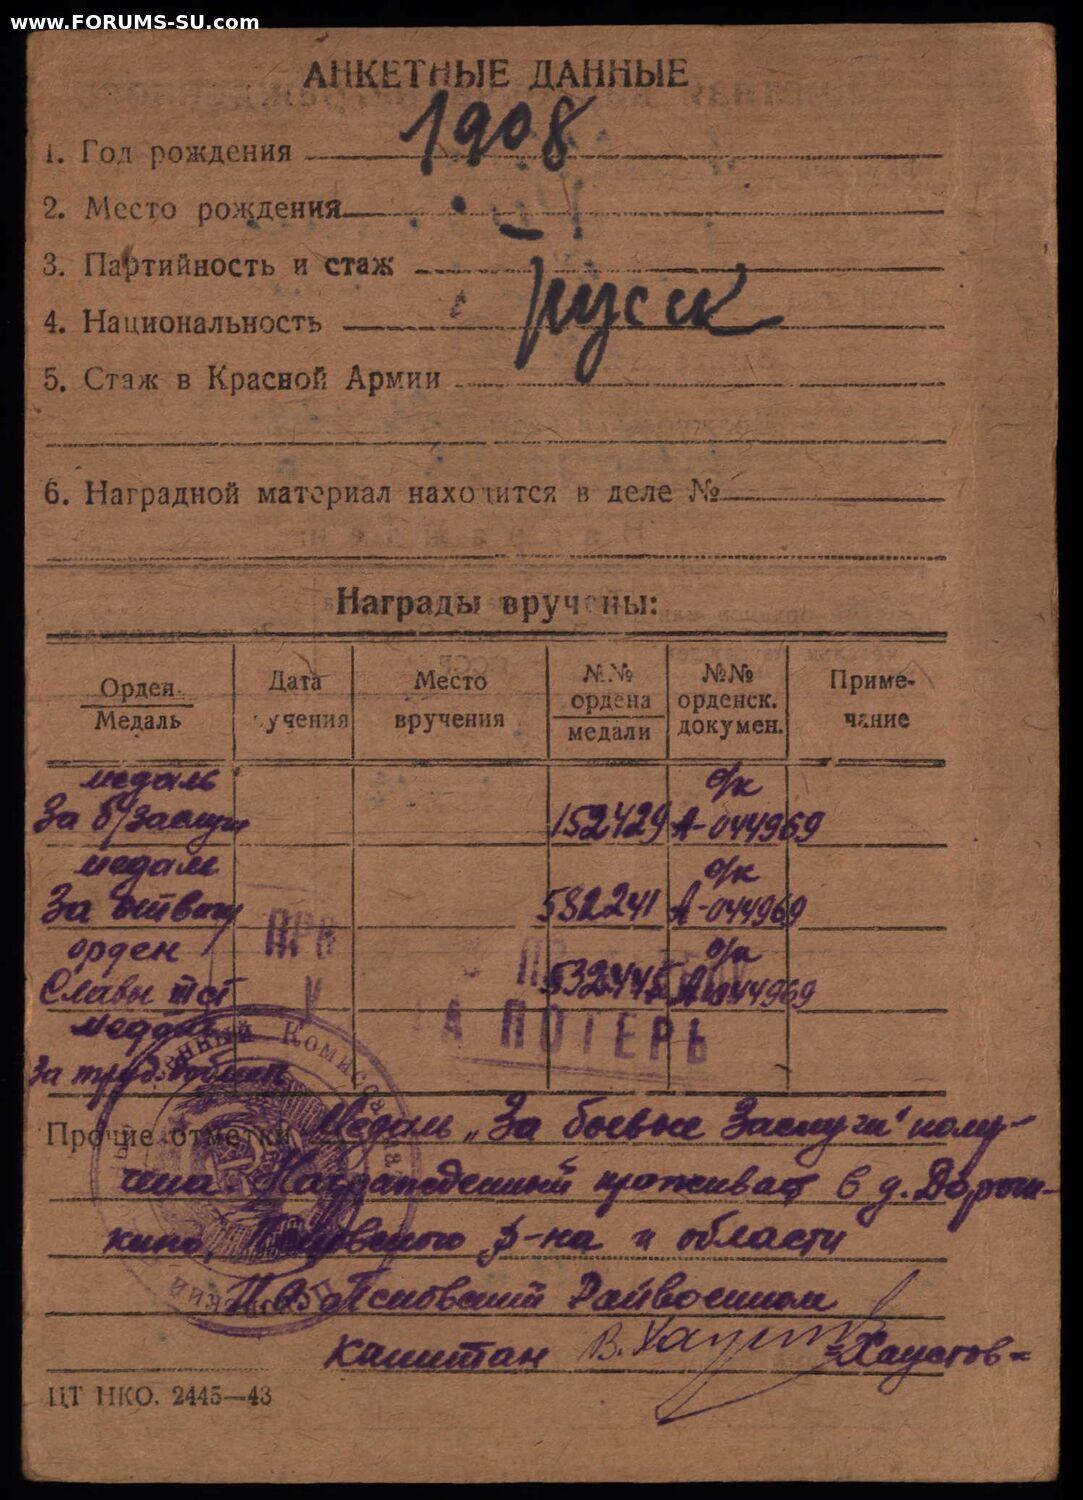 www.FORUMS-SU.com
АНКЕТНЫЕ ДАННЫЕ
1. Год рождения 1908
2. Место рождения
3. Партийность и стаж
4. Национальность русск
5. Стаж в Красной Армии
6. Наградной материал находится в деле №
Награды вручены:
Орден
Медаль
Дата вручения
Место вручения
№№ ордена
медали
№№ орденск. докумен.
Примечание
медаль
За б/заслуги 152429 о/к А-044969
медаль
За отвагу 582241 о/к А-044969
орден
Славы 3 ст 532445 о/к А-044969
медаль
За труд. доблест
ПРОВ
У
ПО
ПОТЕРЬ
Прочие отметки Медаль „За боевые Заслуги" полу-
чил. Награжденный проживает в д.
кино, Псковского р-на и области
Псковский Райвоенком
капитан В. Хаустов =Хаустов=
ЦТ НКО. 2445—43